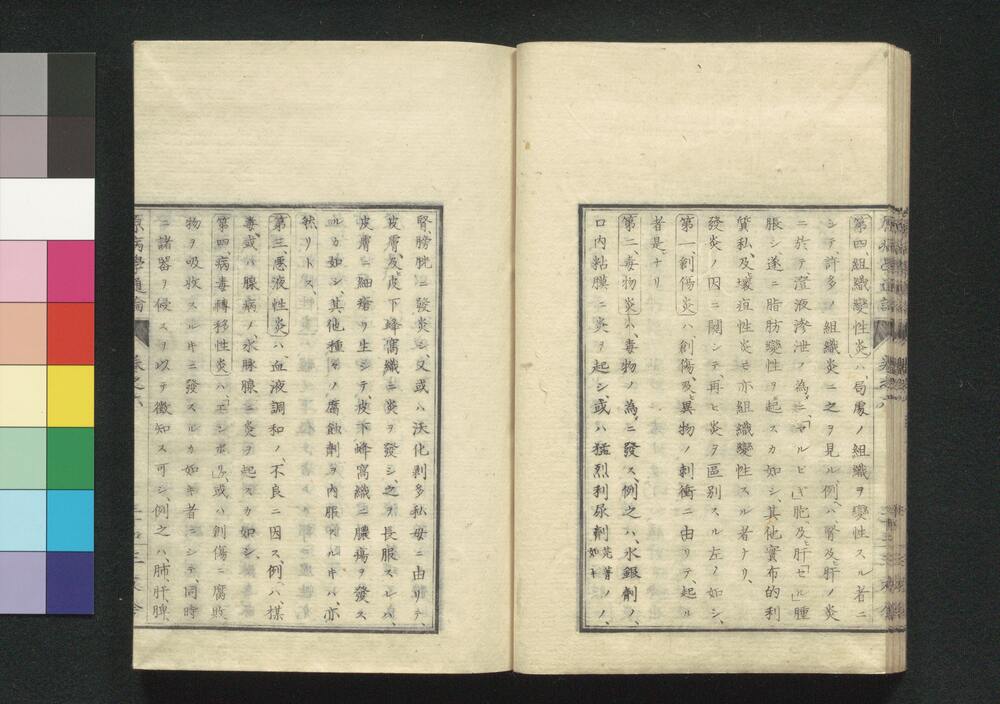 第四組織變性炎ハ、局處ノ組織ヲ變性スル者ニ
シテ許多ノ組織炎ニ之ヲ見ル、例ハ腎及ヒ肝ノ炎
ニ於テ、澄液滲泄ノ為メニ、「マルピギ」胞、及ヒ肝「セル」腫
脹シ遂ニ脂肪變性ヲ起スカ如シ、其他實布的利
質私、及ヒ壞疽性炎モ亦組織變性スル者ナリ、
發炎ノ因ニ關シテ、再ヒ炎ヲ區别スル左ノ如シ、
第一創傷炎ハ創傷、及ヒ異物ノ刺衝ニ由リテ、起ル
者是ナリ
第二毒物炎ハ、毒物ノ為メニ發ス、例之ハ、水銀劑ノ、
口内粘膜ニ炎ヲ起シ、或ハ猛烈利尿劑芫菁ノ如キノ、
腎、膀胱ニ發炎シ、又或ハ沃化剥多私毋ニ由リテ、
皮膚、及ヒ皮下蜂窩織ニ炎ヲ發シ、之ヲ長服スレハ、
皮膚ニ細瘡ヲ生シテ、皮下蜂窩織ニ膿瘍ヲ發ス
ルカ如シ、其他種々ノ腐蝕劑ヲ内服スルキハ、亦
然リトス、
第三、惡液性炎ハ、血液調和ノ、不良ニ因ス、例ハ、楳
毒、或ハ腺病ノ、水脉腺ニ炎ヲ起スカ如シ、
第四、病毒轉移性炎ハ、「エンボリ」、或ハ創傷ニ腐敗
物ヲ吸收スルキニ發スルカ如キ者ニシテ、同時
ニ諸器ヲ侵スヲ以テ徴知ス可シ、例之ハ肺、肝、脾、
原病學通論
卷之六